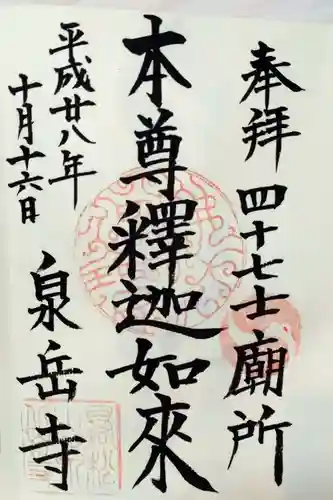 奉拜 四十七士廟所
本尊釋迦如來
平成廿八年
十月十六日
泉岳寺